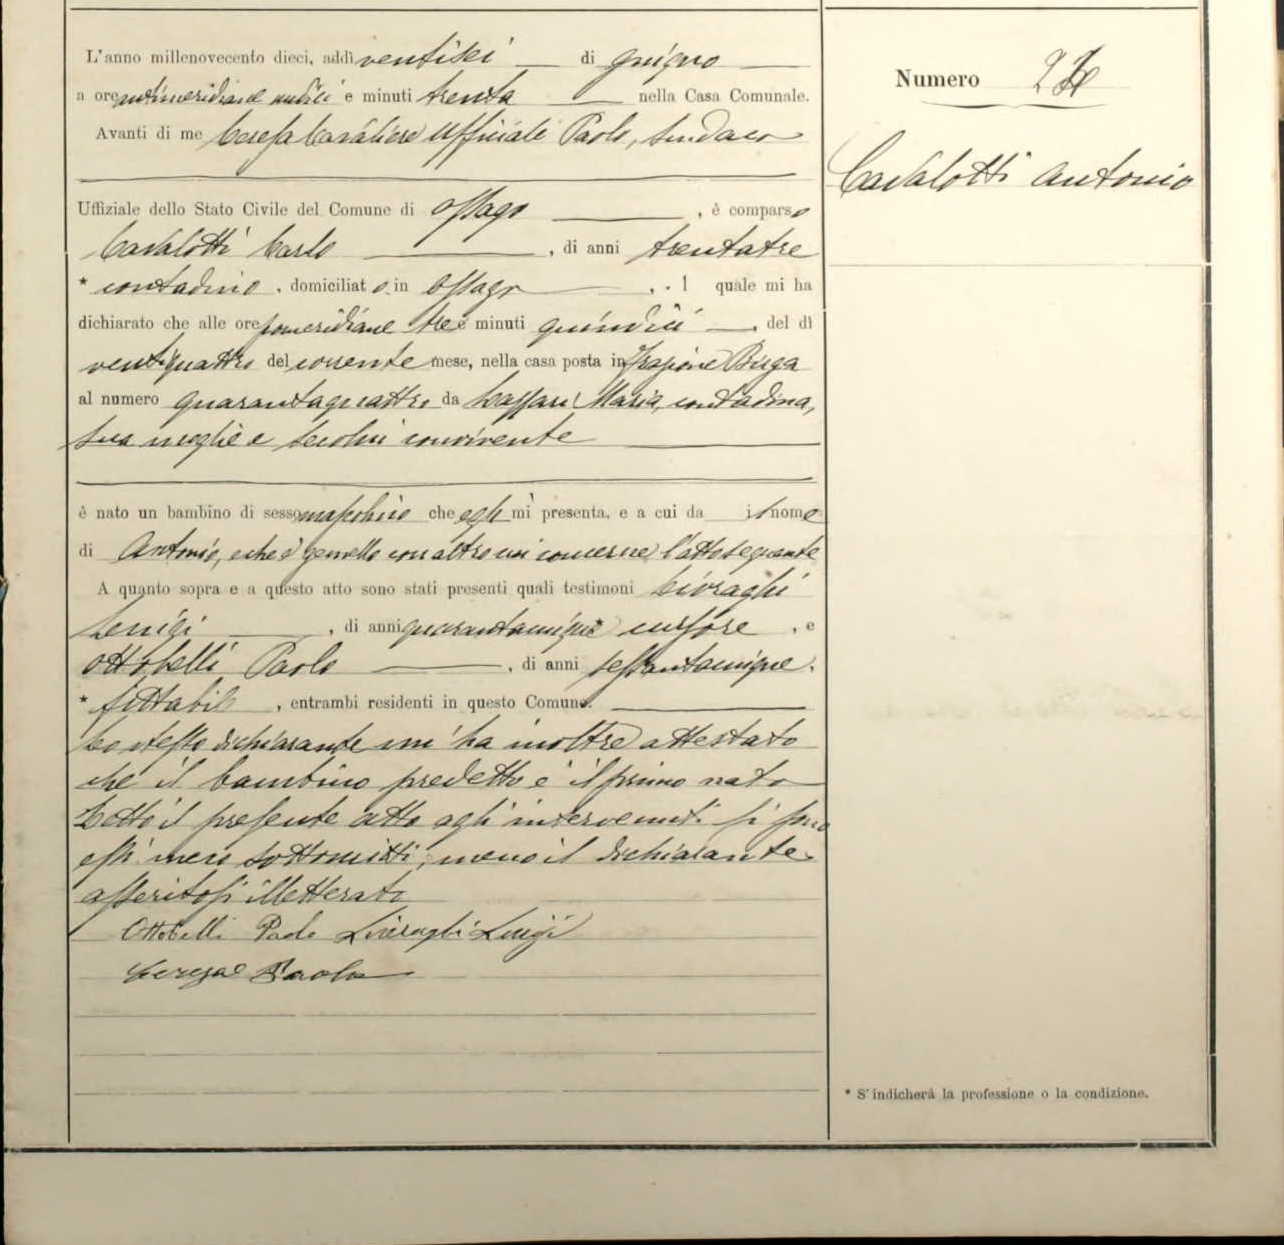 L'anno millenovecento dieci, addì ventisei di giugno
a ore antimeridiane undici e minuti trenta nella Casa Comunale.
Avanti di me Ceresa Cavaliere Ufficiale Paolo, Sindaco
Numero
Cavalotti Antonio
Uffiziale dello Stato Civile del Comune di Ossago, è comparso
Cavalotti Carlo, di anni trentatre
* contadino, domiciliato in Ossago, . l quale mi ha
dichiarato che alle ore pomeridiane tre e minuti quindici, del dì
ventiquattro del corrente mese, nella casa posta in frazione Brega
al numero quarantaquattro da Maria, contadina,
sua moglie e secolui convivente
è nato un bambino di sesso maschile che egli mi presenta, e a cui da il nome
di Antonio, e che è gemello con altro cui concerne l'atto seguente
A quanto sopra e a questo atto sono stati presenti quali testimoni Livraghi
Luigi, di anni quarantacinque * cursore, e
Ottobelli Paolo, di anni sessantacinque,
* fittabile, entrambi residenti in questo Comune.
Lo stesso dichiarante mi ha inoltre attestato
che il bambino predetto è il primo nato
Letto il presente atto agli intervenuti si sono
essi meco sottoscritti, meno il dichiarante
asseritosi illetterato
Ottobelli Paolo Livraghi Luigi
Ceresa Paolo
* S'indicherà la professione o la condizione.